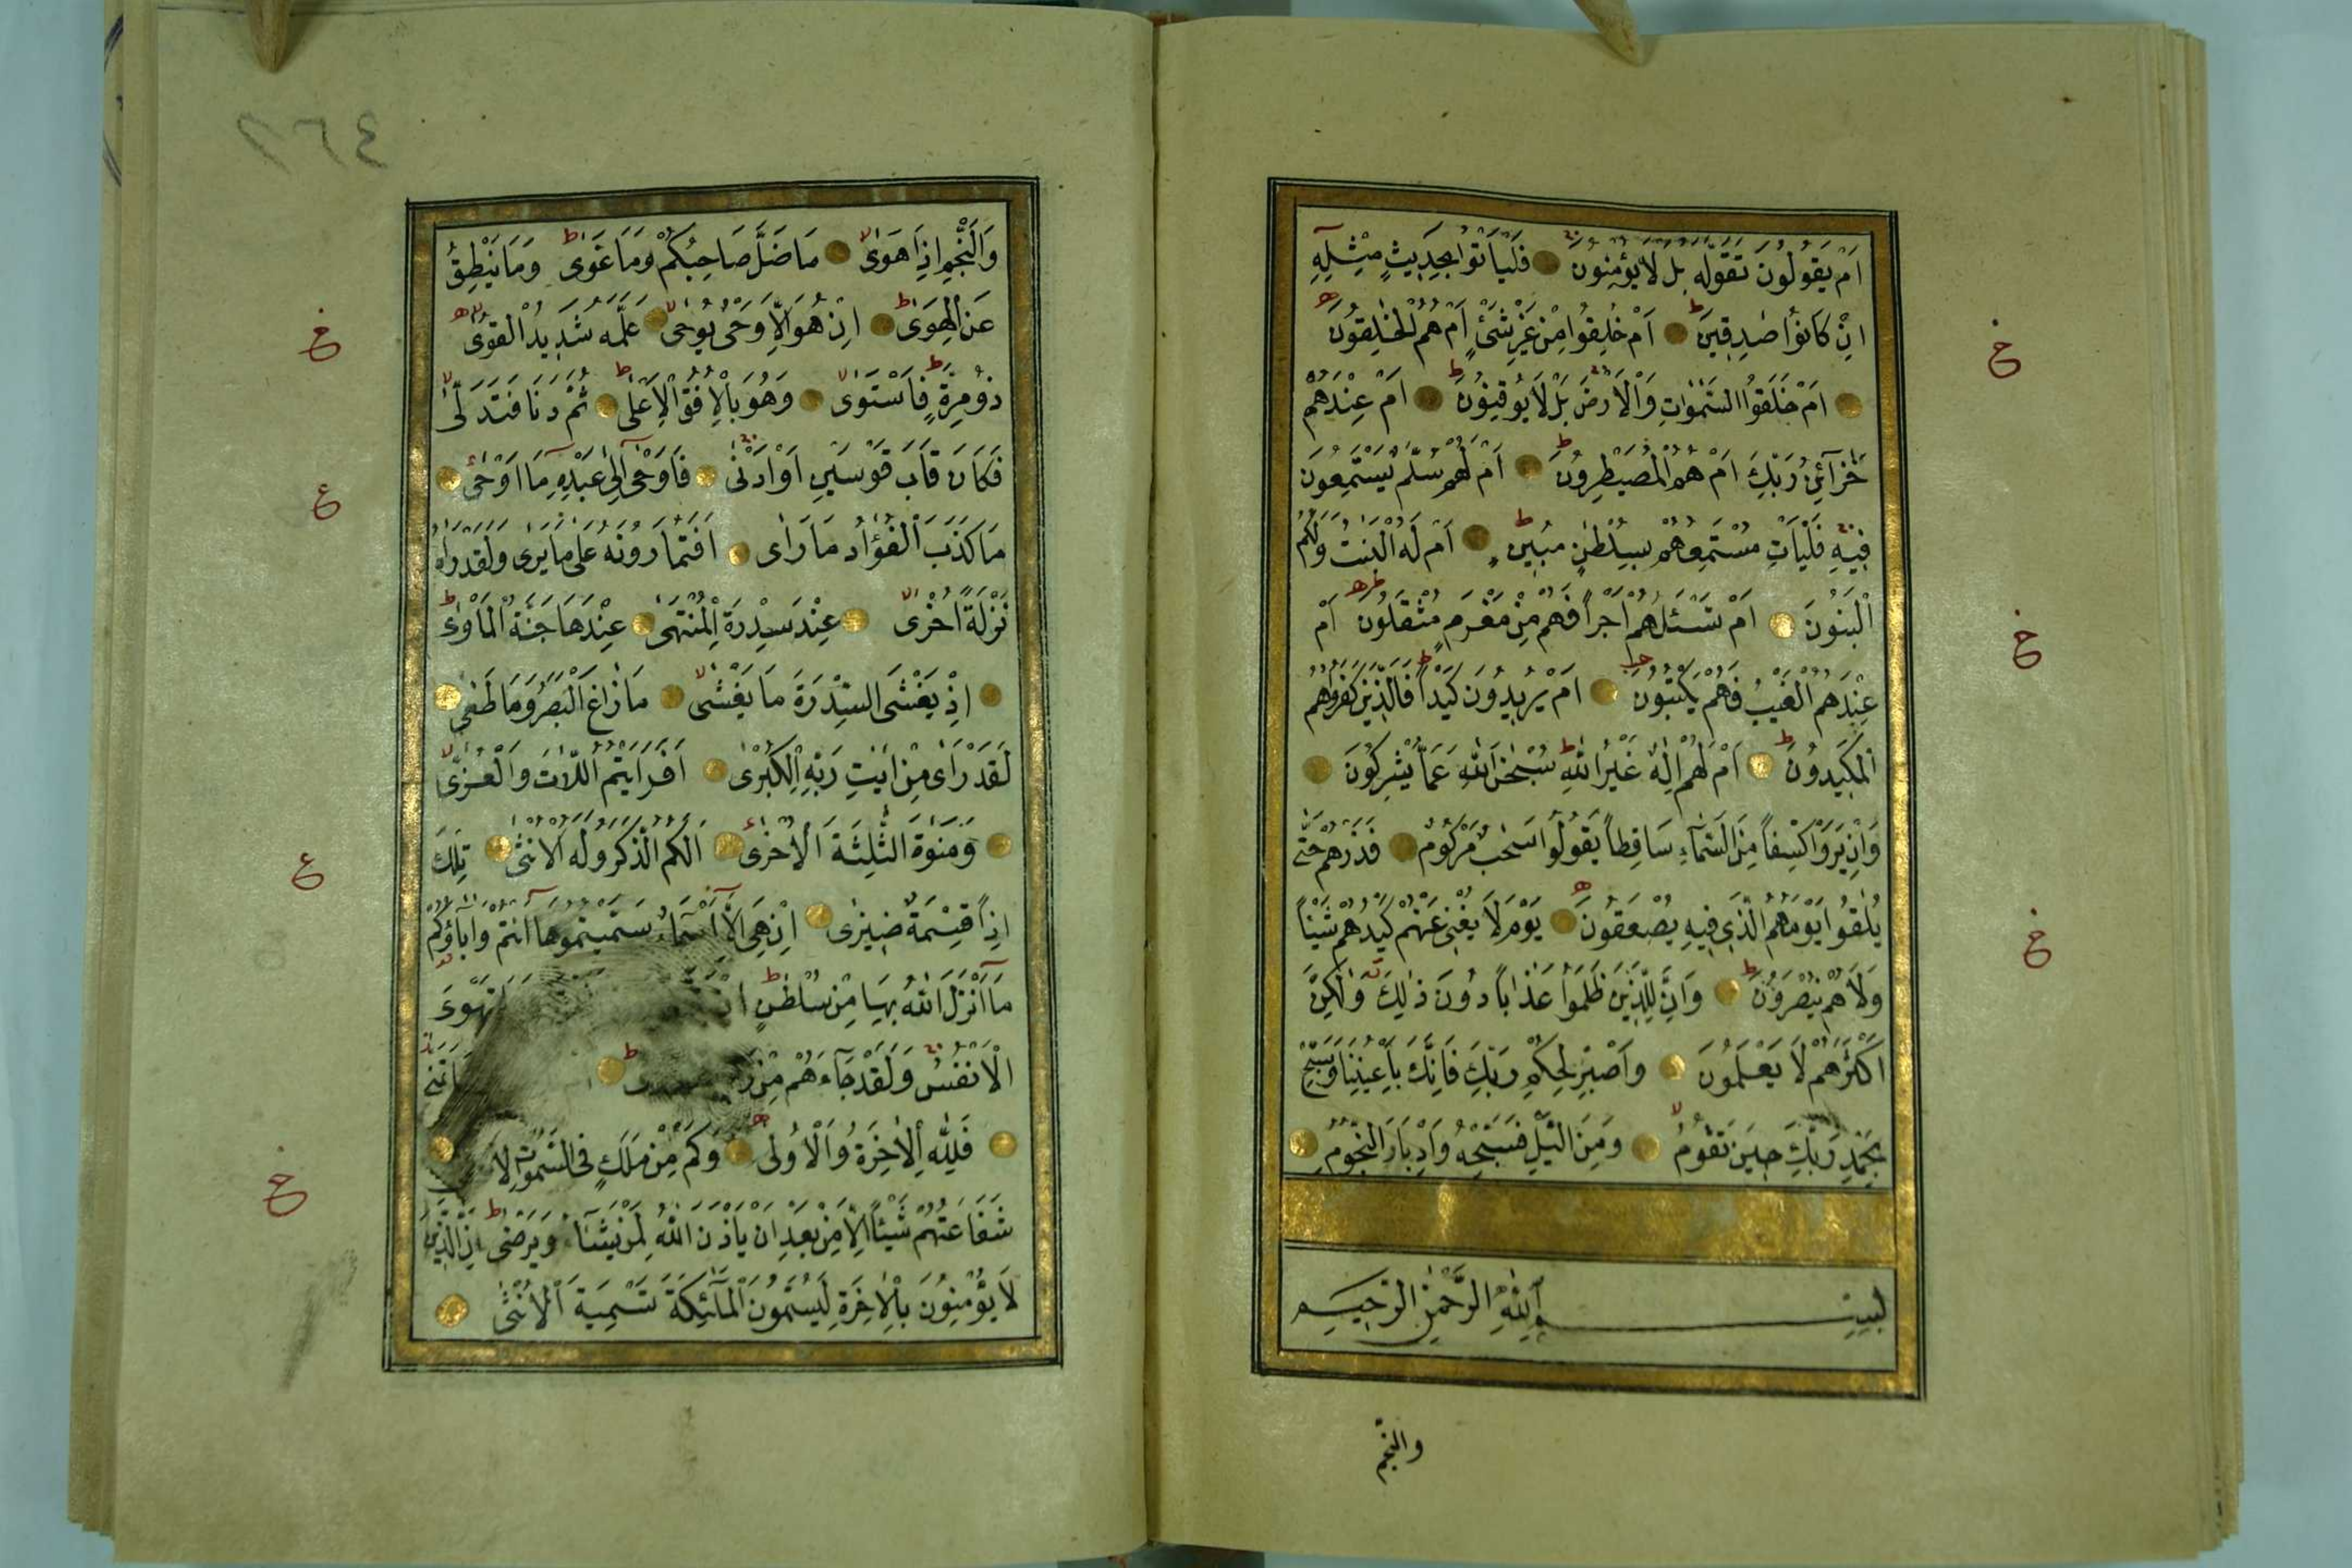 اَمْ يَقُولُونَ تَقَوَّلَهُ بَلْ لَا يُؤْمِنُونَ فَلْيَأْتُوا بِحَدِيثٍ مِثْلِهِٓ
اِنْ كَانُوا صٰدِقِينَ اَمْ خُلِقُوا مِنْ غَيْرِ شَيْءٍ اَمْ هُمُ الْخٰلِقُونَ
اَمْ خَلَقُوا السَّمٰوٰتِ وَالْاَرْضَ بَلْ لَا يُوقِنُونَ اَمْ عِنْدَهُمْ
خَزَآئِنُ رَبِّكَ اَمْ هُمُ الْمُصَيْطِرُونَ اَمْ لَهُمْ سُلَّمٌ يَسْتَمِعُونَ
فِيهِ فَلْيَأْتِ مُسْتَمِعُهُمْ بِسُلْطٰنٍ مُبِينٍ اَمْ لَهُ الْبَنٰتُ وَلَكُمُ
الْبَنُونَ اَمْ تَسْـَٔلُهُمْ اَجْرًا فَهُمْ مِنْ مَغْرَمٍ مُثْقَلُونَ اَمْ
عِنْدَهُمُ الْغَيْبُ فَهُمْ يَكْتُبُونَ اَمْ يُرِيدُونَ كَيْدًا فَالَّذِينَ كَفَرُوا هُمُ
الْمَكِيدُونَ اَمْ لَهُمْ اِلٰهٌ غَيْرُ اللّٰهِ سُبْحٰنَ اللّٰهِ عَمَّا يُشْرِكُونَ
وَاِنْ يَرَوْا كِسْفًا مِنَ السَّمَآءِ سَاقِطًا يَقُولُوا سَحَابٌ مَرْكُومٌ فَذَرْهُمْ حَتّٰى
يُلٰقُوا يَوْمَهُمُ الَّذِي فِيهِ يُصْعَقُونَ يَوْمَ لَا يُغْنِي عَنْهُمْ كَيْدُهُمْ شَيْـًٔا
وَلَا هُمْ يُنْصَرُونَ وَاِنَّ لِلَّذِينَ ظَلَمُوا عَذَابًا دُونَ ذٰلِكَ وَلٰكِنَّ
اَكْثَرَهُمْ لَا يَعْلَمُونَ وَاصْبِرْ لِحُكْمِ رَبِّكَ فَاِنَّكَ بِاَعْيُنِنَا وَسَبِّحْ
بِحَمْدِ رَبِّكَ حِينَ تَقُومُ وَمِنَ الَّيْلِ فَسَبِّحْهُ وَاِدْبَارَ النُّجُومِ
بِسْمِ اللّٰهِ الرَّحْمٰنِ الرَّحِيمِ
والنجم
٢٦٤
وَالنَّجْمِ اِذَا هَوٰى مَا ضَلَّ صَاحِبُكُمْ وَمَا غَوٰى وَمَا يَنْطِقُ
عَنِ الْهَوٰى اِنْ هُوَ اِلَّا وَحْيٌ يُوحٰى عَلَّمَهُ شَدِيدُ الْقُوٰى
ذُو مِرَّةٍ فَاسْتَوٰى وَهُوَ بِالْاُفُقِ الْاَعْلٰى ثُمَّ دَنَا فَتَدَلّٰى
فَكَانَ قَابَ قَوْسَيْنِ اَوْ اَدْنٰى فَاَوْحٰٓى اِلٰى عَبْدِهِ مَآ اَوْحٰى
مَا كَذَبَ الْفُؤَادُ مَا رَاٰى اَفَتُمَارُونَهُ عَلٰى مَا يَرٰى وَلَقَدْ رَاٰهُ
نَزْلَةً اُخْرٰى عِنْدَ سِدْرَةِ الْمُنْتَهٰى عِنْدَهَا جَنَّةُ الْمَأْوٰى
اِذْ يَغْشَى السِّدْرَةَ مَا يَغْشٰى مَا زَاغَ الْبَصَرُ وَمَا طَغٰى
لَقَدْ رَاٰى مِنْ اٰيٰتِ رَبِّهِ الْكُبْرٰى اَفَرَاَيْتُمُ اللّٰاتَ وَالْعُزّٰى
وَمَنٰوةَ الثَّالِثَةَ الْاُخْرٰى اَلَكُمُ الذَّكَرُ وَلَهُ الْاُنْثٰى تِلْكَ
اِذًا قِسْمَةٌ ضِيزٰى اِنْ هِيَ اِلَّآ اَسْمَآءٌ سَمَّيْتُمُوهَآ اَنْتُمْ وَاٰبَآؤُكُمْ
مَآ اَنْزَلَ اللّٰهُ بِهَا مِنْ سُلْطٰنٍ تَهْوَى
الْاَنْفُسُ وَلَقَدْ جَآءَهُمْ مِنْ
فَلِلّٰهِ الْاٰخِرَةُ وَالْاُولٰى وَكَمْ مِنْ مَلَكٍ فِي السَّمٰوٰتِ لَا
شَفَاعَتُهُمْ شَيْـًٔا اِلَّا مِنْ بَعْدِ اَنْ يَأْذَنَ اللّٰهُ لِمَنْ يَشَآءُ وَيَرْضٰى اِنَّ الَّذِينَ
لَا يُؤْمِنُونَ بِالْاٰخِرَةِ لَيُسَمُّونَ الْمَلٰٓئِكَةَ تَسْمِيَةَ الْاُنْثٰى